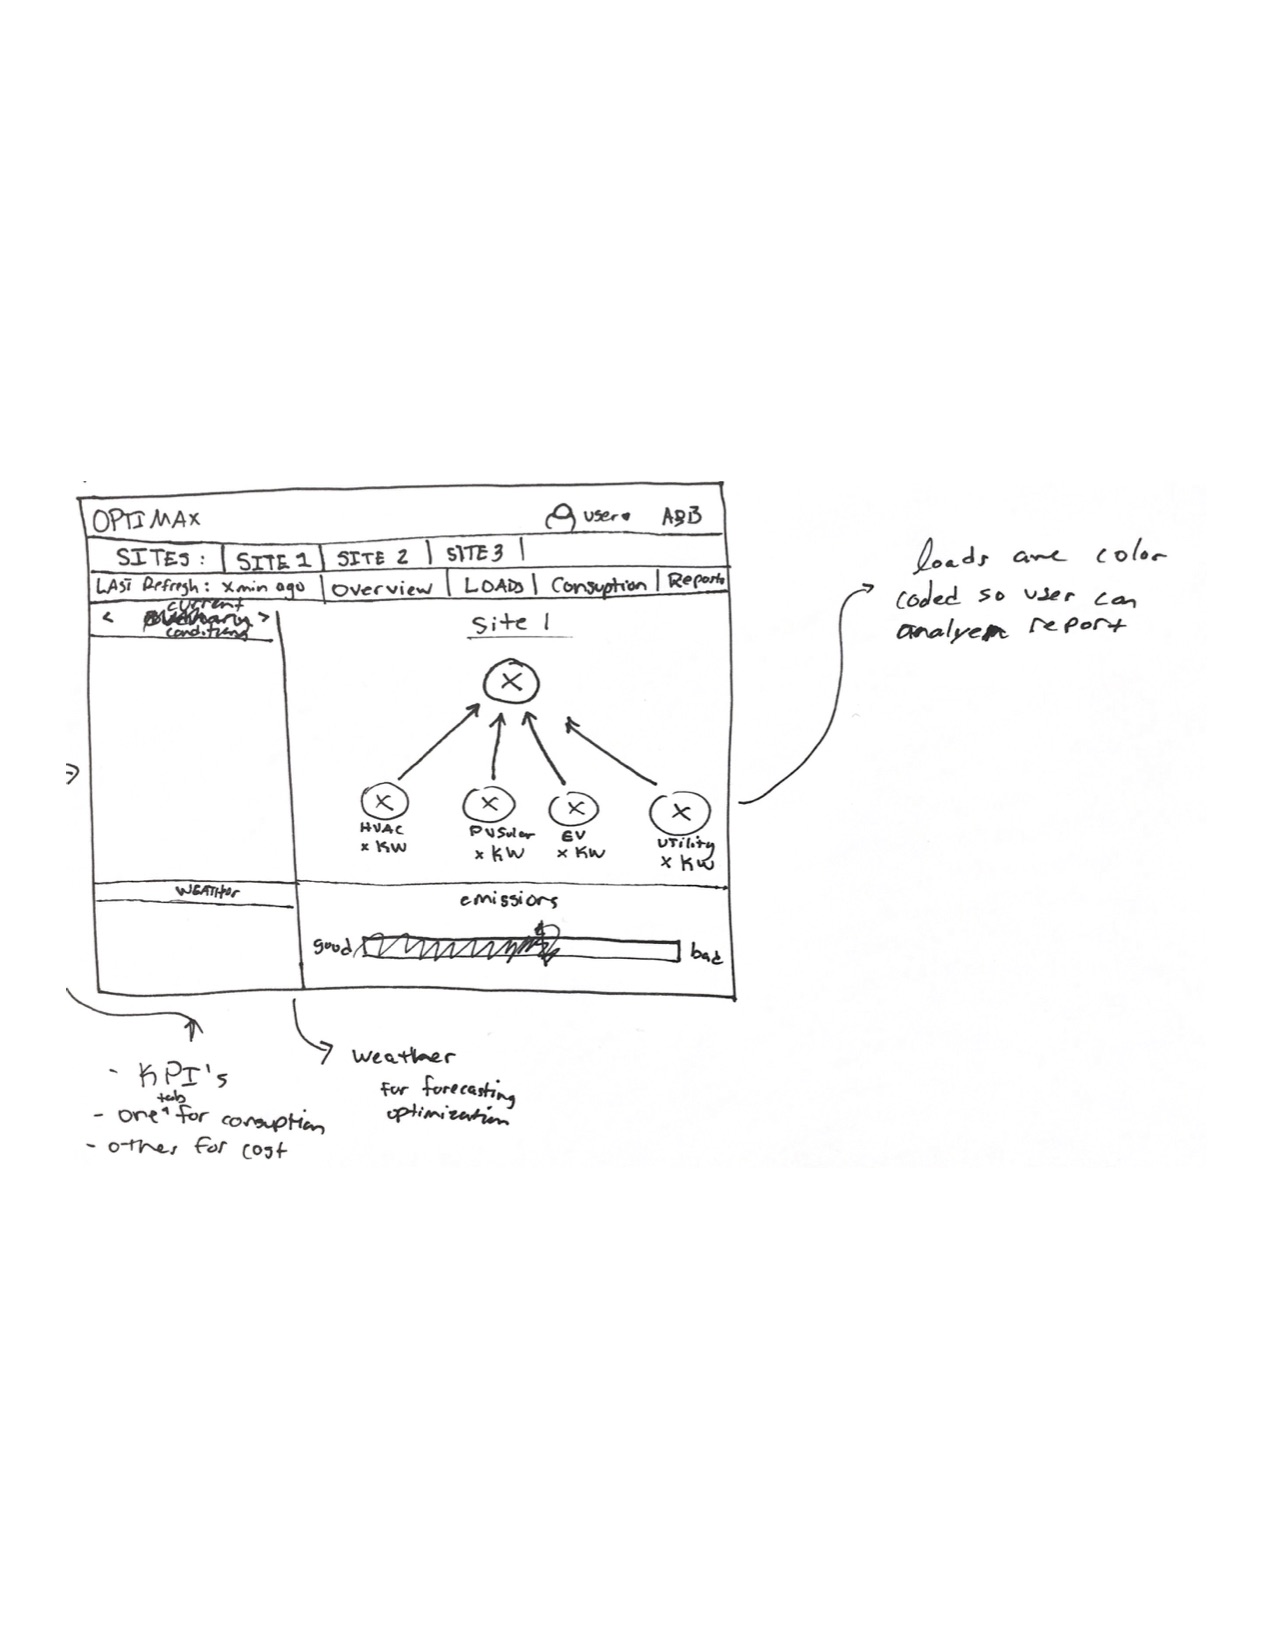 OPTIMAX
user
ABB
SITES : SITE 1 SITE 2 SITE 3
LAST Refresh : x min ago Overview LOADS Consuption Reports
< current >
conditions
Site 1
X
X X X X
HVAC
x KW
PV Solar
x KW
EV
x KW
UTility
x KW
WEATHer
emissions
good
bad
loads are color
coded so user can
report
- KPI's
tab
- one for consuption
- other for cost
weather
for forecasting
optimization